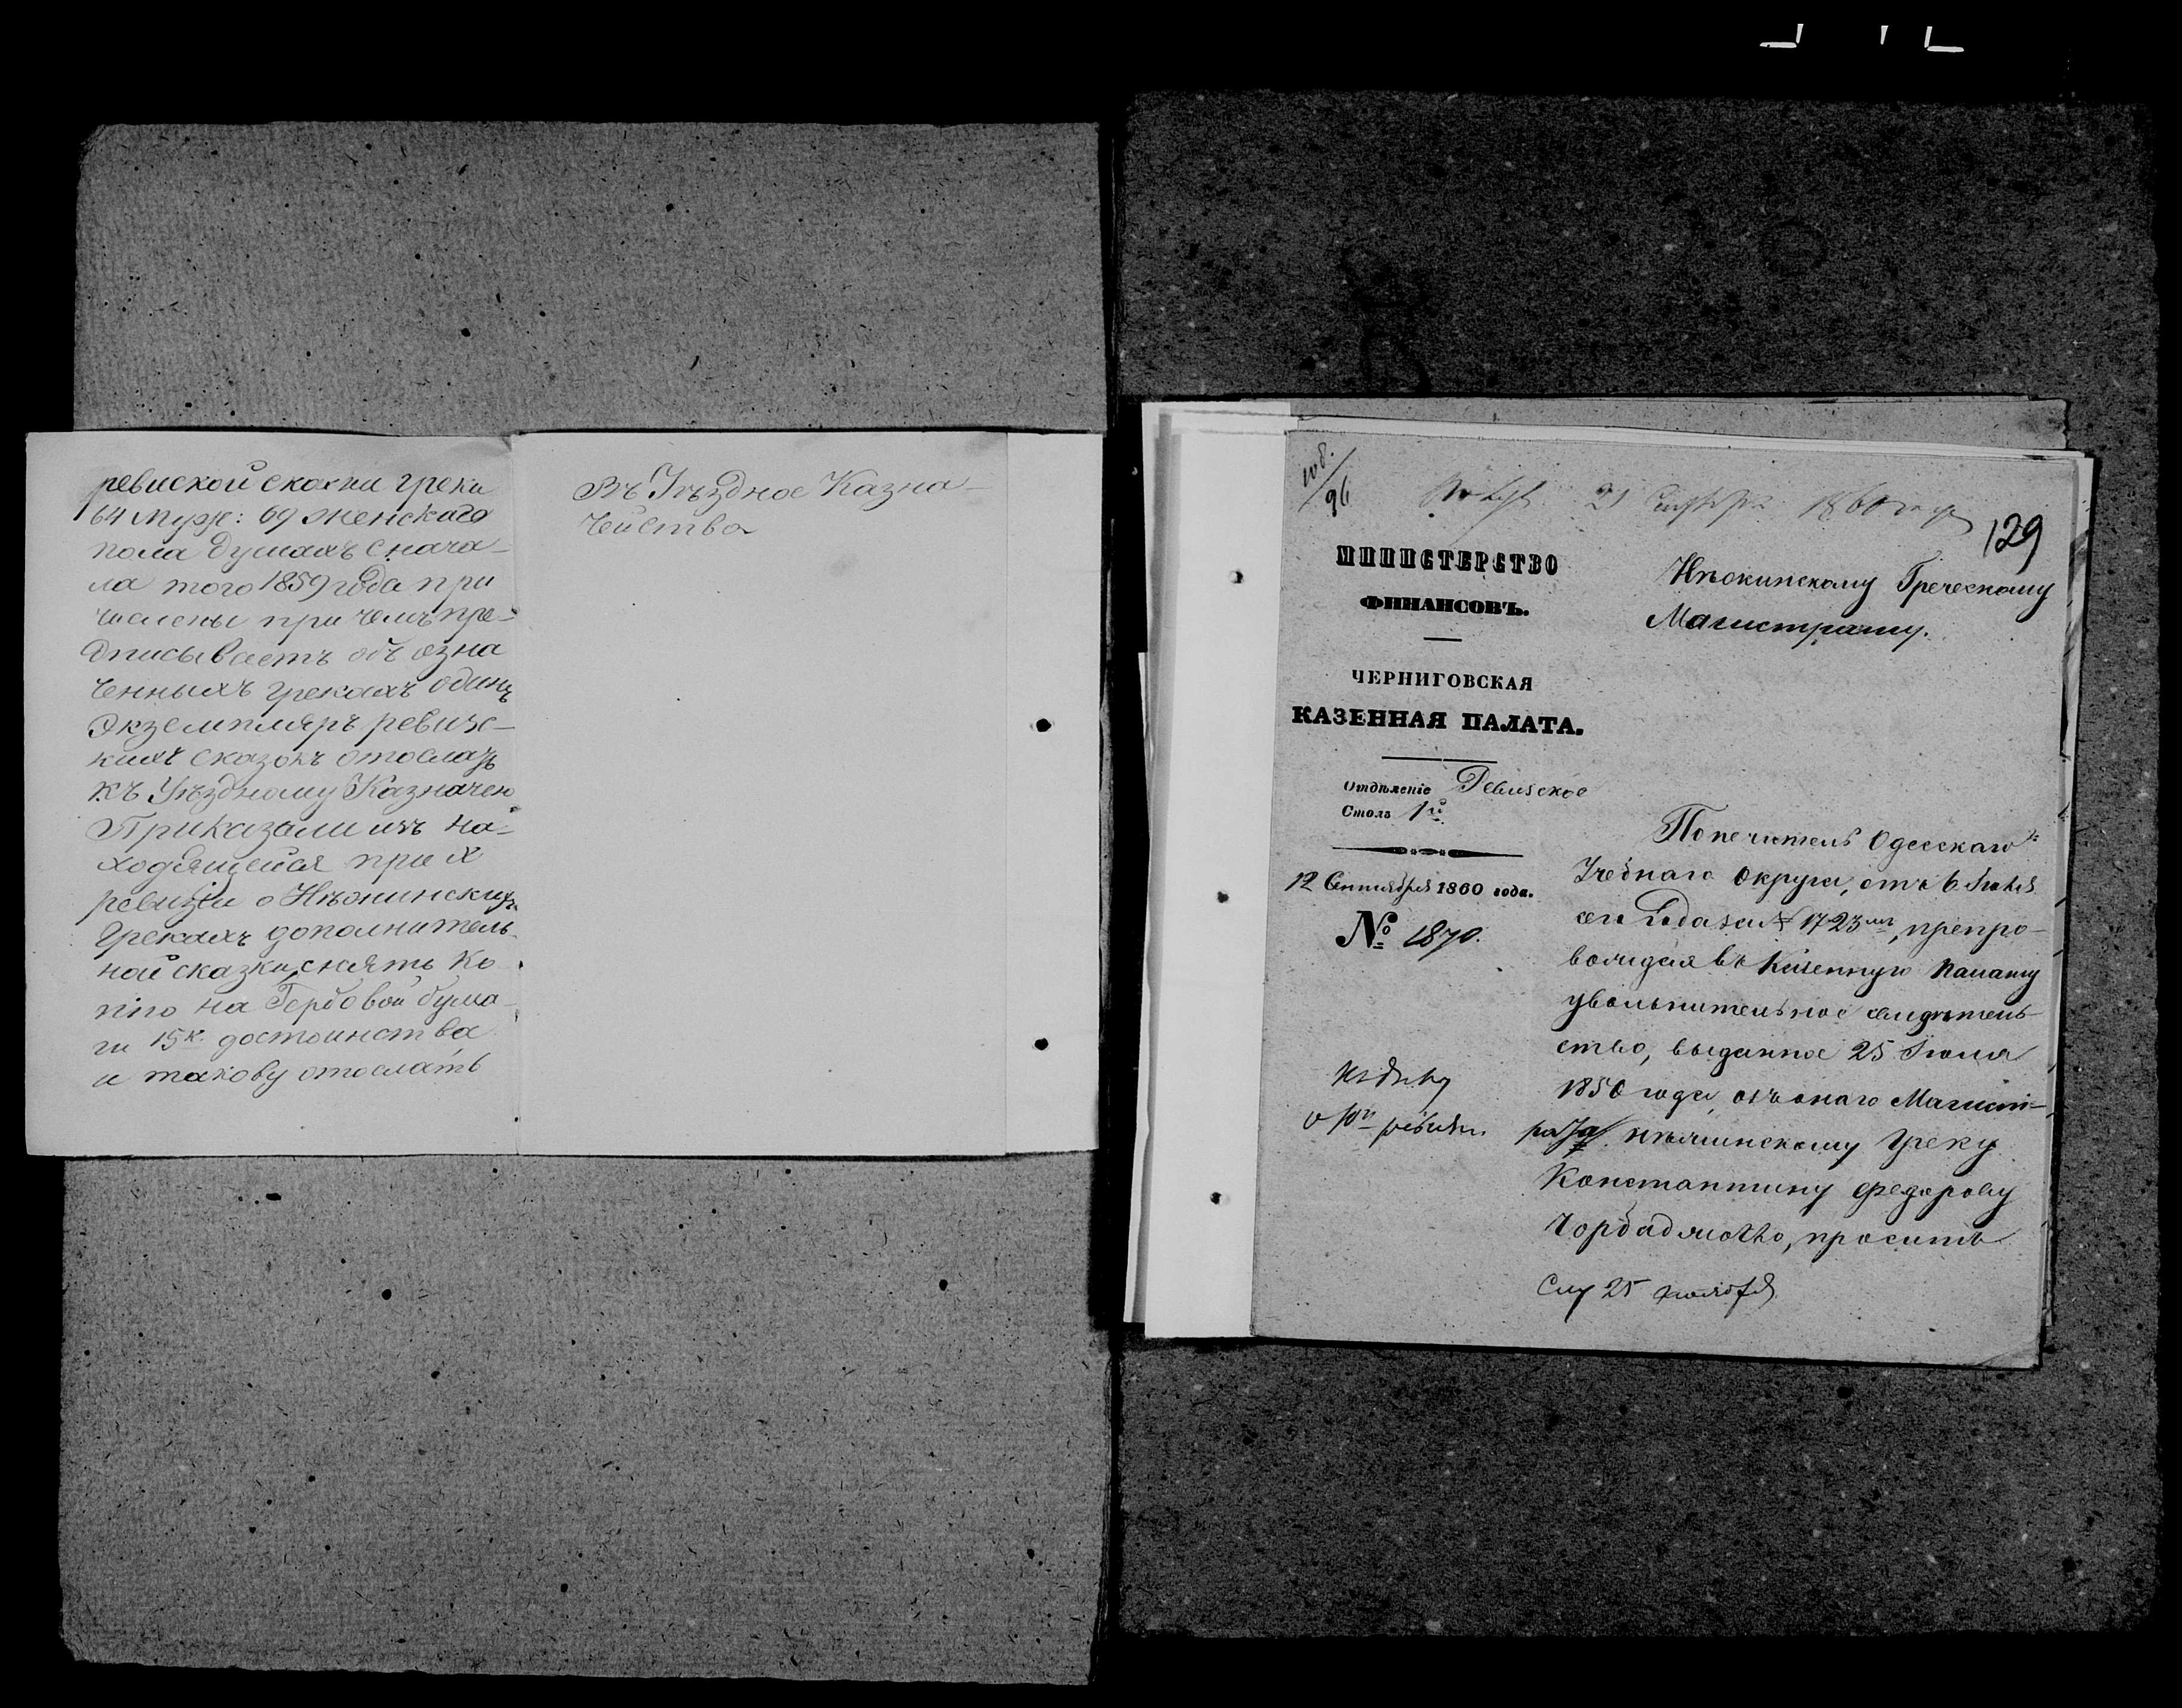 ревиской скаски греки
64 муж: 69 женскаго
пола душахъ с нача-
ла того 1859 года при
числены при чемъ пре-
дписываетъ объ озна
ченныхъ грекахъ одинъ
Экземпляръ ревизс-
кихъ сказокъ отослать
къ Уѣздному Казначею
Приказали изъ на-
ходящейся при х
ревизіи о Нѣжинскихъ
Грекахъ дополнитель-
ной сказки, снять Ко
пію на Гербовой бума-
ги 15 к. достоинства
и такову отослать
Въ Уѣздное Казна-
чейство
96
21 Сентября 1860 года
129
МИНИСТЕРСТВО
ФИНАНСОВЪ.
ЧЕРНИГОВСКАЯ
КАЗЕННАЯ ПАЛАТА.
Отдѣленіе Ревизское
Столъ 1й
12 Сентября 1860 года.
№ 1870.
Къ дѣлу
о 10й ревизіи.
Нѣжинскому Греческому
Магистрату.
Попечитель Одесскаго
Учебнаго Округа, отъ 6
сего Года за № 1723мъ, препро-
вождая въ Казенную Палату
увольнительное свидѣтель-
ство, выданное 25 Іюля
1850 года, изъ онаго Магист-
рата нѣжинскому Греку
Константину Федорову
Чорбаджогло, проситъ
25 ноября